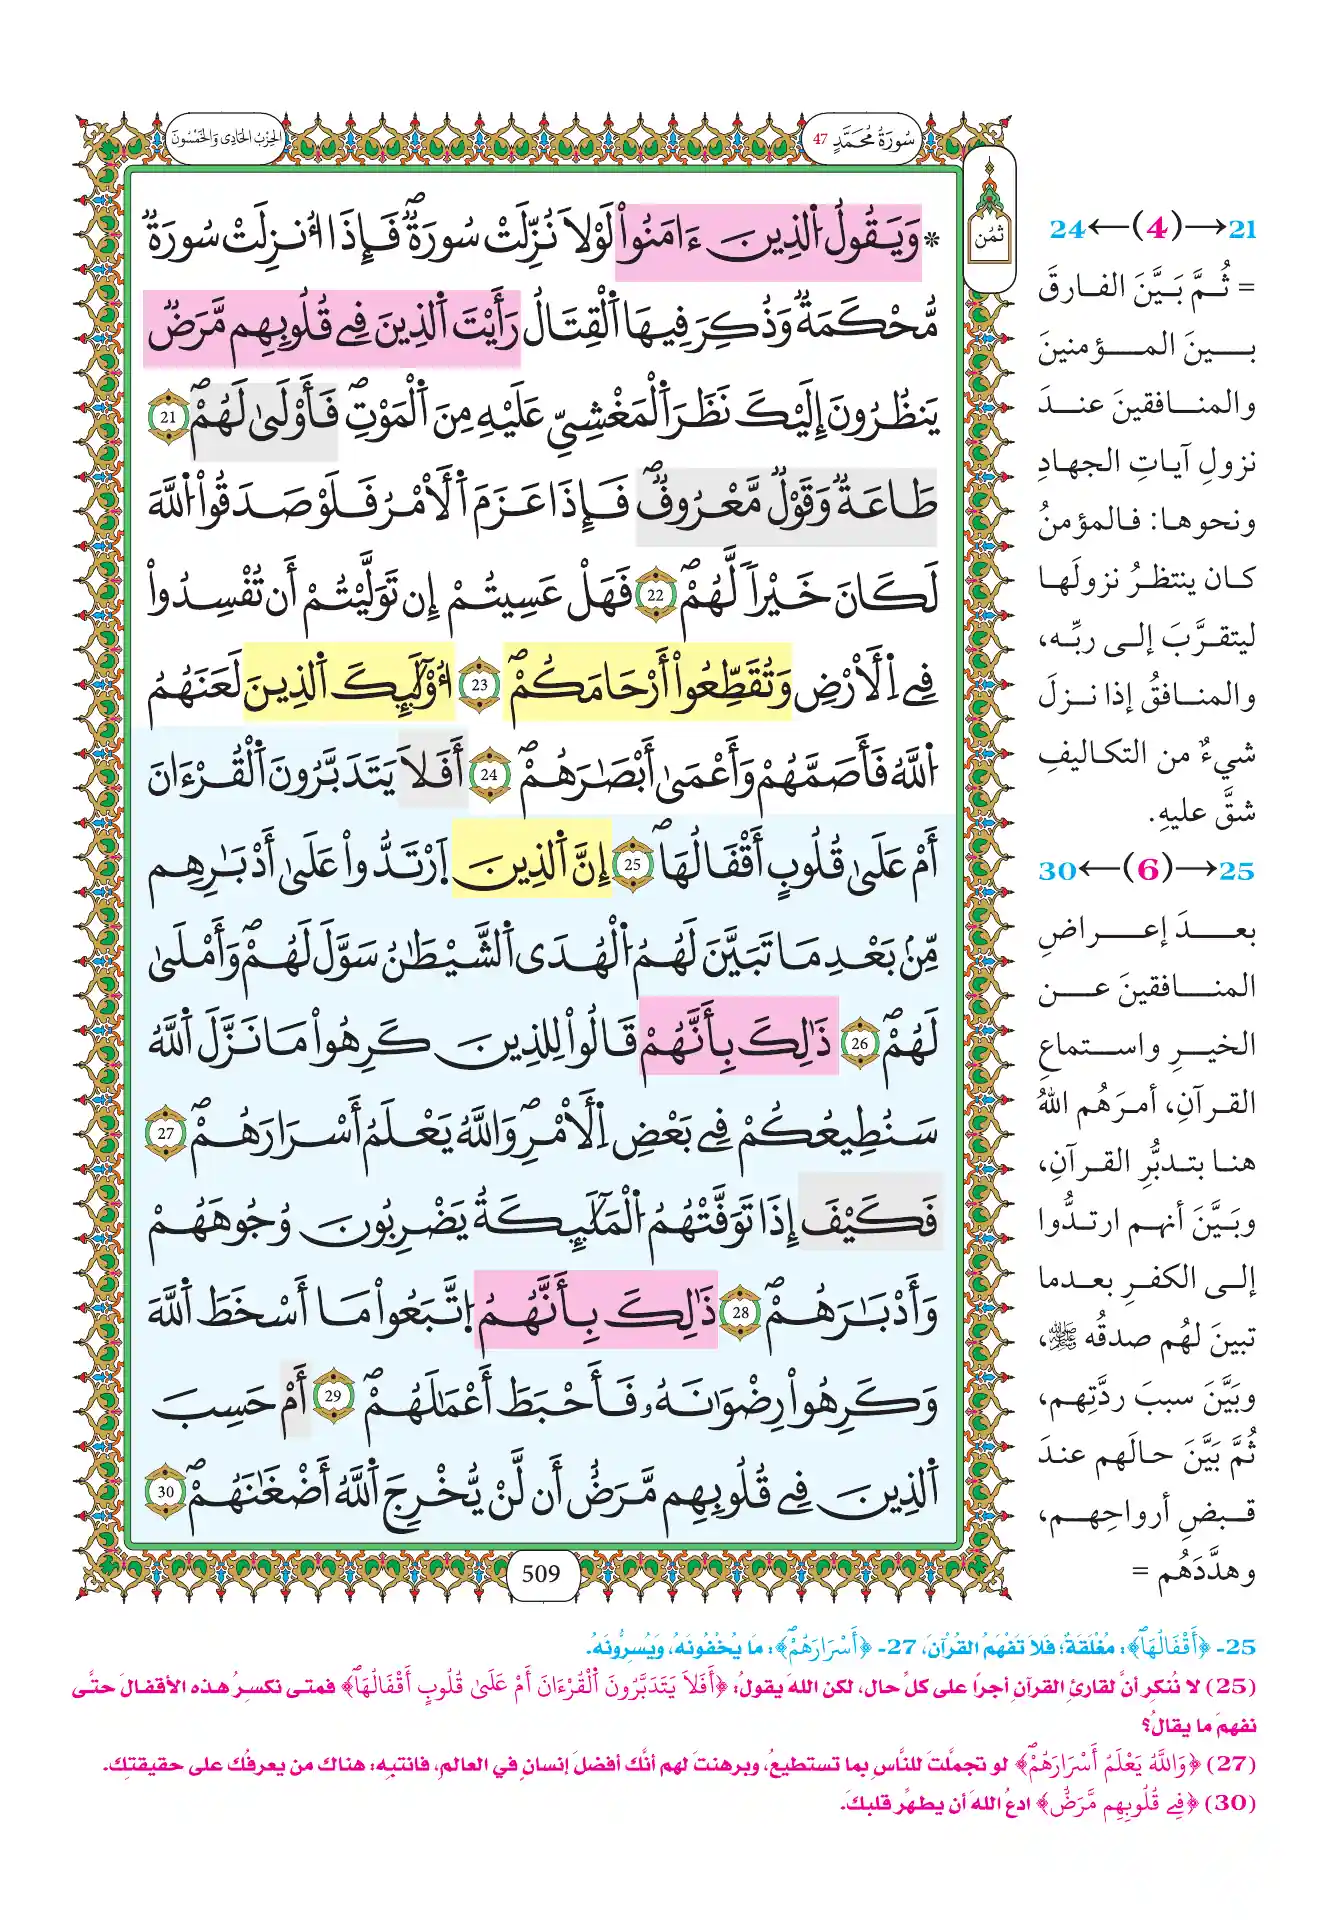 سُورَةُ مُحَمَّدٍ 47
الحِزْبُ الحَادِي وَالخَمْسُونَ
ثمُن
* وَيَقُولُ اُ۬لذِينَ ءَامَنُواْ لَوْلَا نُزِّلَتْ سُورَةٞۖ فَإِذَا أُنزِلَتْ سُورَةٞ
مُّحْكَمَةٞ وَذُكِرَ فِيهَا اَ۬لْقِتَالُ رَأَيْتَ اَ۬لذِينَ فِے قُلُوبِهِم مَّرَضٞ
يَنظُرُونَ إِلَيْكَ نَظَرَ اَ۬لْمَغْشِيِّ عَلَيْهِ مِنَ اَ۬لْمَوْتِۖ فَأَوْلَىٰ لَهُمْۖ 21
طَاعَةٞ وَقَوْلٞ مَّعْرُوفٞۖ فَإِذَا عَزَمَ اَ۬لْأَمْرُ فَلَوْ صَدَقُواْ اُ۬للَّهَ
لَكَانَ خَيْراٗ لَّهُمْۖ 22 فَهَلْ عَسِيتُمْ إِن تَوَلَّيْتُمْ أَن تُفْسِدُواْ
فِے اِ۬لْأَرْضِ وَتُقَطِّعُواْ أَرْحَامَكُمْۖ 23 أُوْلَٰٓئِكَ اَ۬لذِينَ لَعَنَهُمُ
اُ۬للَّهُ فَأَصَمَّهُمْ وَأَعْمَىٰ أَبْصَٰرَهُمْۖ 24 أَفَلَا يَتَدَبَّرُونَ اَ۬لْقُرْءَانَ
أَمْ عَلَىٰ قُلُوبٍ أَقْفَالُهَاۖ 25 إِنَّ اَ۬لذِينَ اَ۪رْتَدُّواْ عَلَىٰ أَدْبَٰرِهِم
مِّنۢ بَعْدِ مَا تَبَيَّنَ لَهُمُ اُ۬لْهُدَى اَ۬لشَّيْطَٰنُ سَوَّلَ لَهُمْۖ وَأَمْلَىٰ
لَهُمْۖ 26 ذَٰلِكَ بِأَنَّهُمْ قَالُواْ لِلذِينَ كَرِهُواْ مَا نَزَّلَ اَ۬للَّهُ
سَنُطِيعُكُمْ فِے بَعْضِ اِ۬لْأَمْرِۖ وَاللَّهُ يَعْلَمُ أَسْرَارَهُمْۖ 27
فَكَيْفَ إِذَا تَوَفَّتْهُمُ اُ۬لْمَلَٰٓئِكَةُ يَضْرِبُونَ وُجُوهَهُمْ
وَأَدْبَٰرَهُمْۖ 28 ذَٰلِكَ بِأَنَّهُمُ اُ۪تَّبَعُواْ مَا أَسْخَطَ اَ۬للَّهَ
وَكَرِهُواْ رِضْوَٰنَهُۥ فَأَحْبَطَ أَعْمَٰلَهُمْۖ 29 أَمْ حَسِبَ
اَ۬لذِينَ فِے قُلُوبِهِم مَّرَضٌ أَن لَّنْ يُّخْرِجَ اَ۬للَّهُ أَضْغَٰنَهُمْۖ 30
509
21→(4)←24
= ثُمَّ بَيَّنَ الفارقَ
بينَ المؤمنينَ
والمنافقينَ عندَ
نزولِ آياتِ الجهادِ
ونحوها: فالمؤمنُ
كان ينتظرُ نزولَها
ليتقرَّبَ إلى ربِّه،
والمنافقُ إذا نزلَ
شيءٌ من التكاليفِ
شقَّ عليهِ.
25→(6)←30
بعدَ إعراضِ
المنافقينَ عن
الخيرِ واستماعِ
القرآنِ، أمرَهُم اللهُ
هنا بتدبُّرِ القرآنِ،
وبَيَّنَ أنهم ارتدُّوا
إلى الكفرِ بعدما
تبينَ لهُم صدقُه ﷺ،
وبَيَّنَ سببَ ردَّتِهم،
ثُمَّ بَيَّنَ حالَهم عندَ
قبضِ أرواحِهم،
وهدَّدَهُم =
25- ﴿أَقْفَالُهَاۖ﴾: مُغْلَقَةٌ؛ فَلاَ تَفْهَمُ القُرْآنَ، 27- ﴿أَسْرَارَهُمْۖ﴾: مَا يُخْفُونَهُ، وَيُسِرُّونَهُ.
(25) لا نُنكِر أنَّ لقارئِ القرآنِ أجرًا على كلِّ حال، لكن اللهَ يقولُ: ﴿أَفَلَا يَتَدَبَّرُونَ اَ۬لْقُرْءَانَ أَمْ عَلَىٰ قُلُوبٍ أَقْفَالُهَاۖ﴾ فمتى نكسرُ هذه الأقفالَ حتَّى
نفهمَ ما يقالُ؟
(27) ﴿وَاللَّهُ يَعْلَمُ أَسْرَارَهُمْۖ﴾ لو تجملَّتَ للنَّاسِ بما تستطيعُ، وبرهنتَ لهم أنَّك أفضلَ إنسانٍ في العالمِ، فانتبهِ: هناك من يعرفُك على حقيقتِك.
(30) ﴿فِے قُلُوبِهِم مَّرَضٌ﴾ ادعُ اللهَ أن يطهِّر قلبكَ.